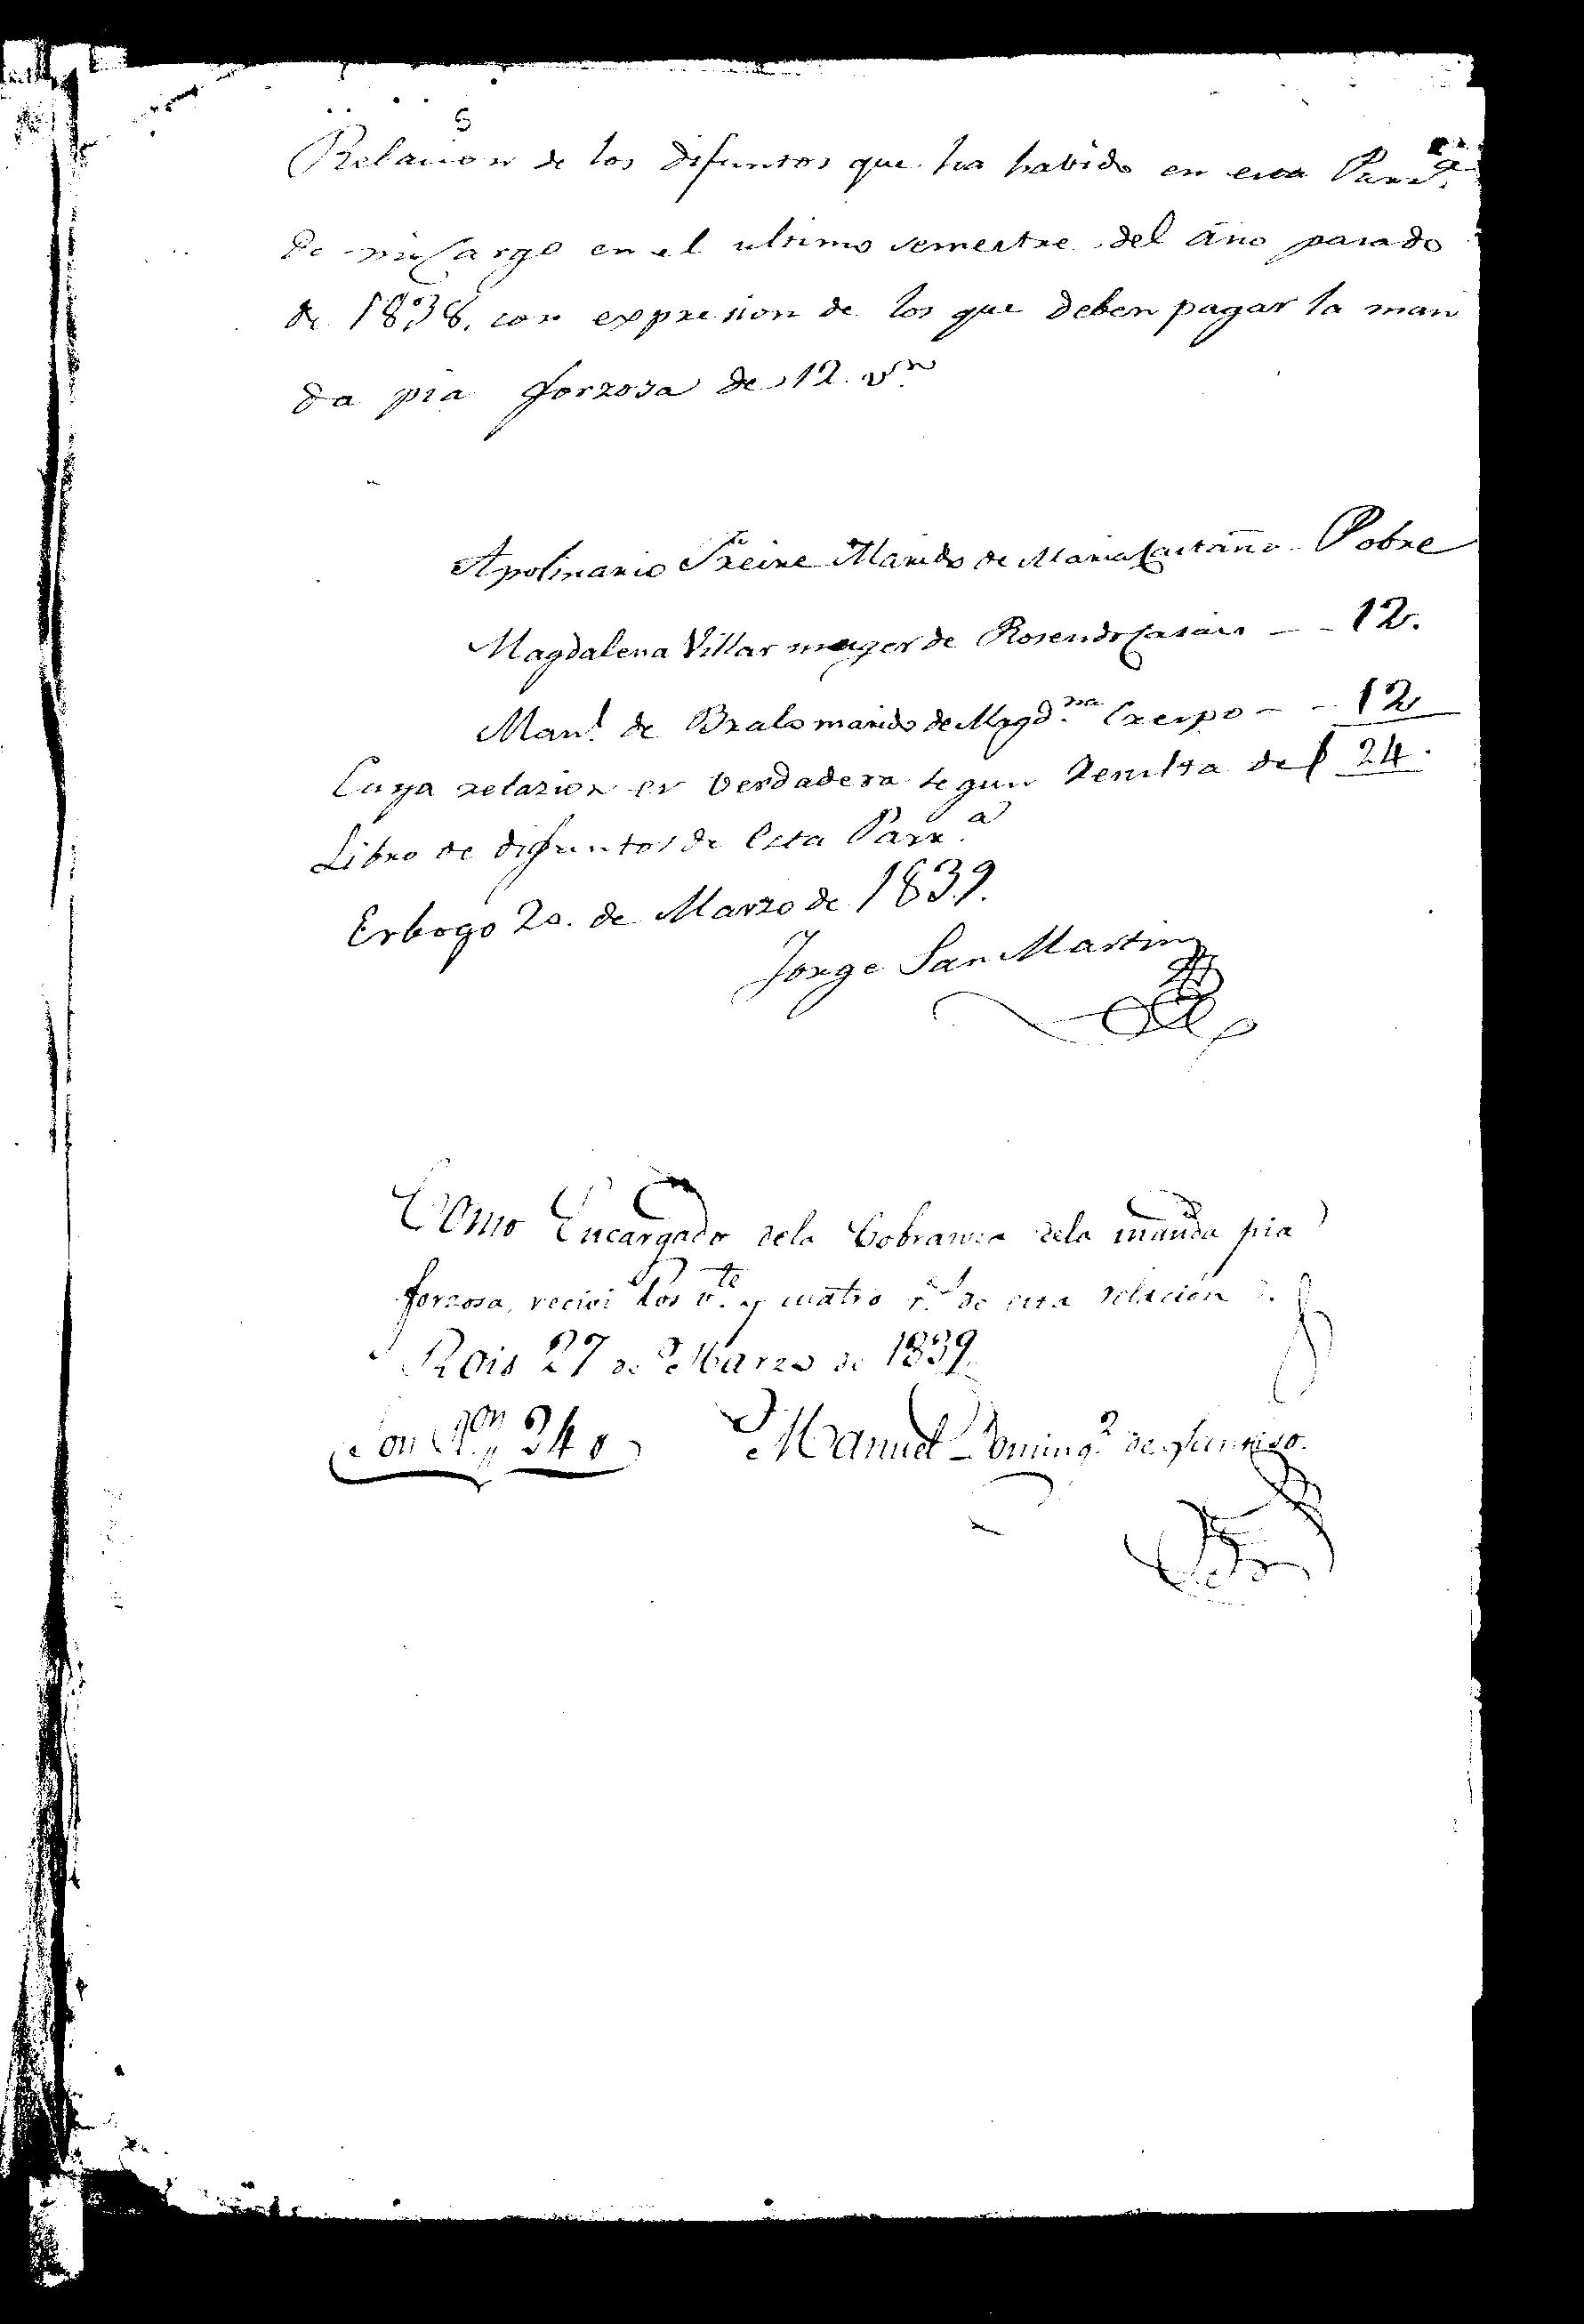 Relacion de los difuntos que ha habido en esta Parrª
de mi Cargo en el ultimo semestre del año pasado
de 1838, con expresion de los que deben pagar la man
da pia forzosa de 12. rn
Apolinario Freire Marido de Maria Castaño Pobre
Magdalena Villar muger de Rosendo Casais - - 12.
Manl. de Bralo marido de Magd.na Crespo - - 12
Cuya relazion es verdadera segun Resulta del 24.
Libro de difuntos de Esta Parr.a
Erbogo 20. de Marzo de 1839.
Jorge San Martin
Como Encargado dela Cobranza dela manda pia
forzosa, recivi los v.te y cuatro r.s de esta relacion
Rois 27 de Marzo de 1839.
Son R.on 24
Manuel Doming.z de